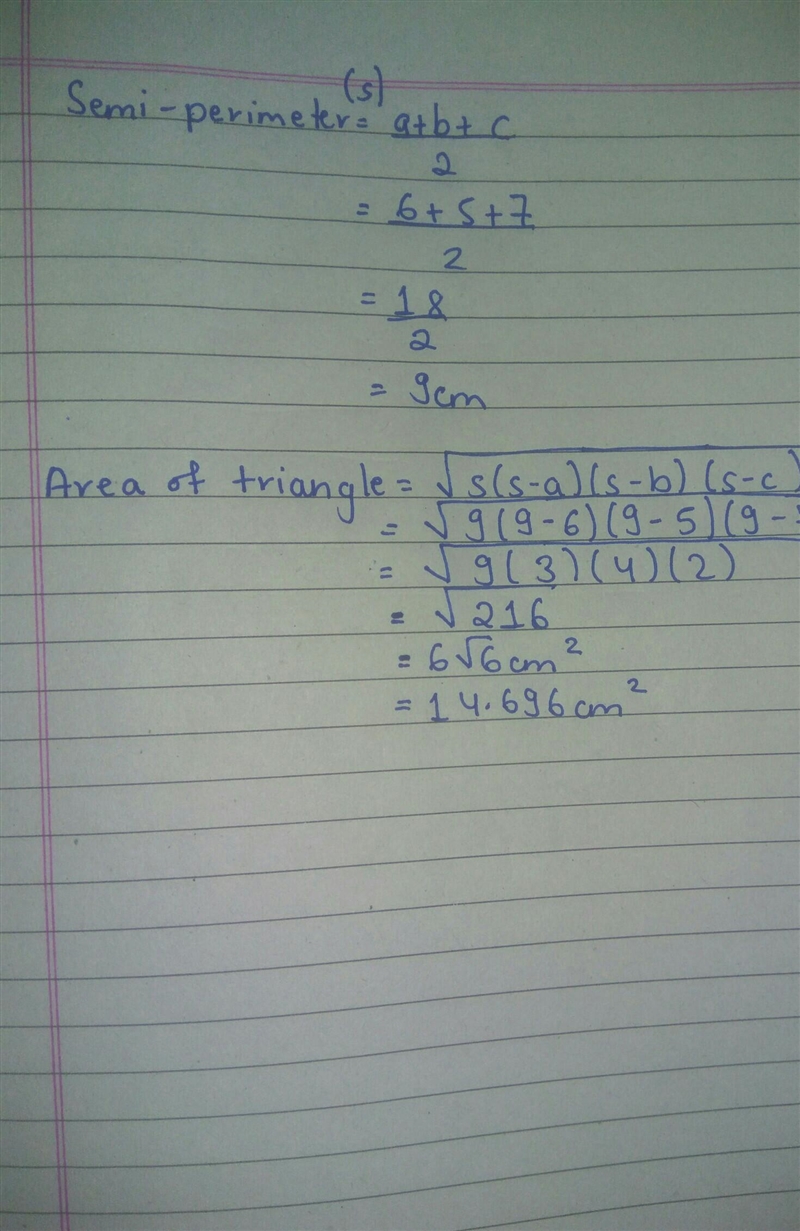 Semi-perimeter (s) = a+b+c
2
= 6+5+7
2
= 18
2
= 9cm
Area of triangle = √s(s-a)(s-b)(s-c)
= √9(9-6)(9-5)(9-
= √9(3)(4)(2)
= √216
= 6√6cm²
= 14.696cm²